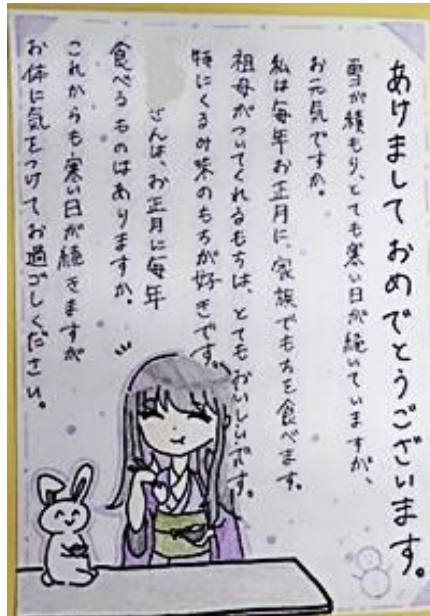 あけましておめでとうございます。
雪が積もり、とても寒い日が続いていますが、
お元気ですか。
私は毎年お正月に、家族でもちを食べます。
祖母がついてくれるもちは、とてもおいしいです。
特にくるみ味のもちが好きです。
さんは、お正月に毎年
食べるものはありますか。
これからも寒い日が続きますが
お体に気をつけてお過ごしください。